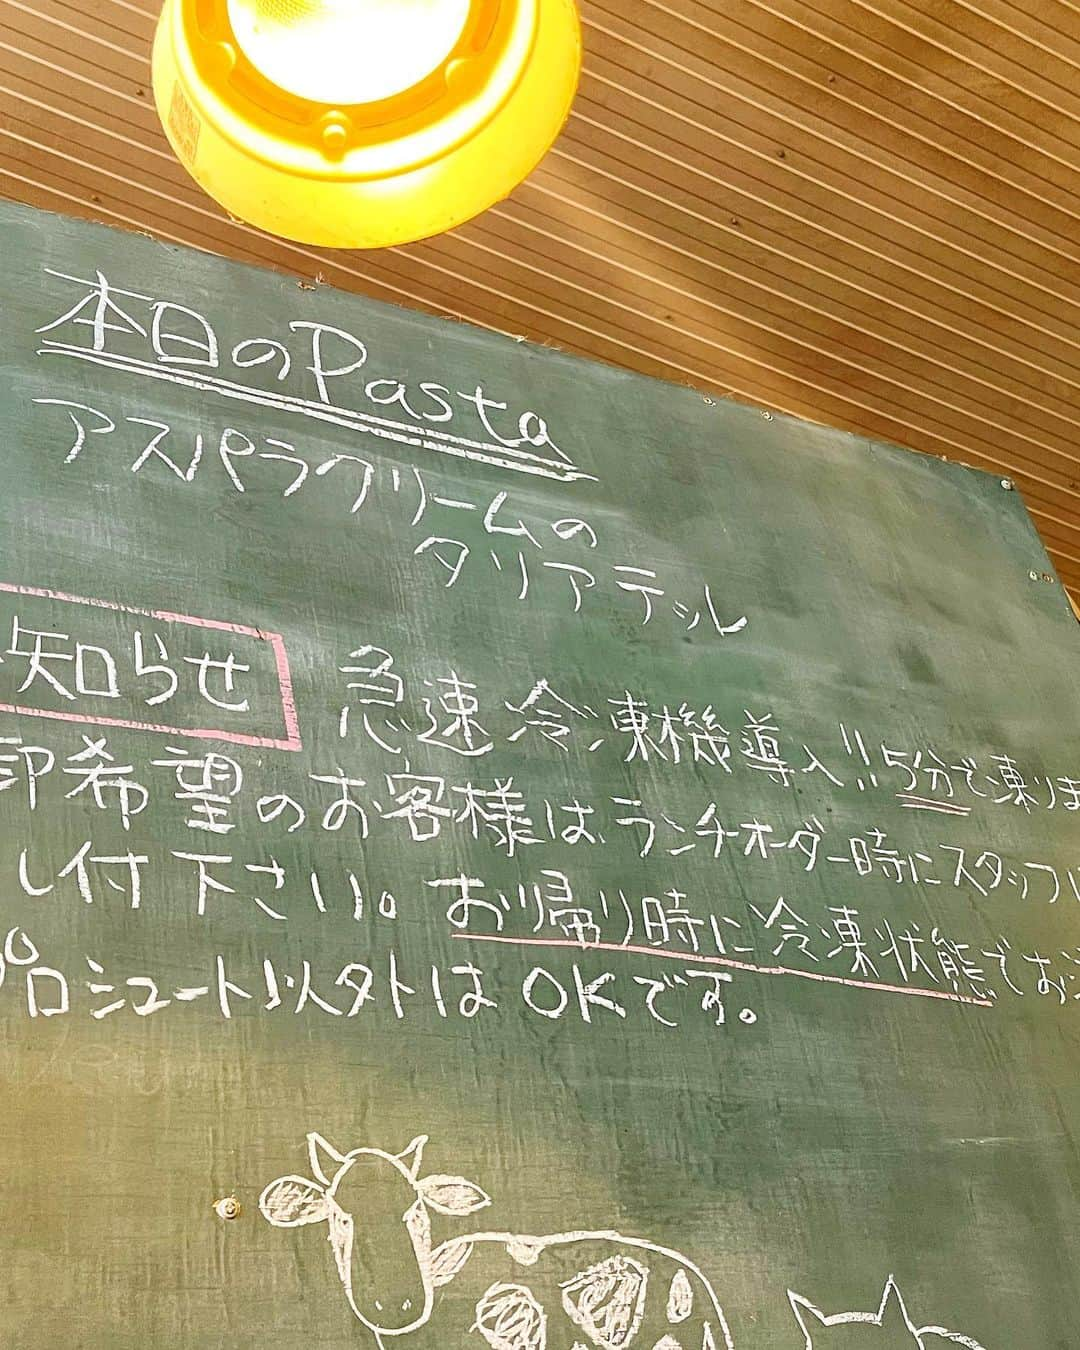 本日のPasta
アスパラクリームの
タリアテッレ
知らせ
急速冷凍機導入!! 5分で凍りま
希望のお客様はランチオーダー時にスタッフ
し付下さい。お帰り時に冷凍状態でお
プロシュート以外はOKです。